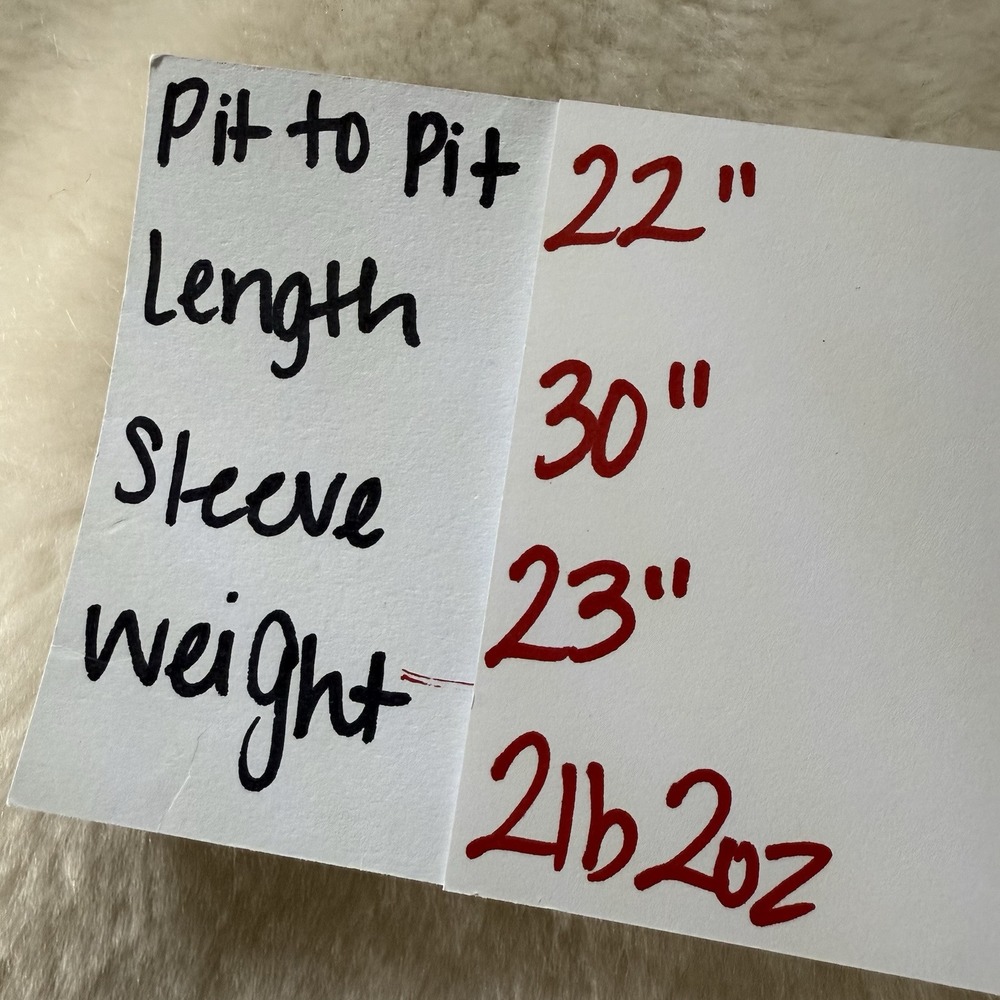 Pit to Pit 22"
Length 30"
Sleeve 23"
Weight 2lb 2oz